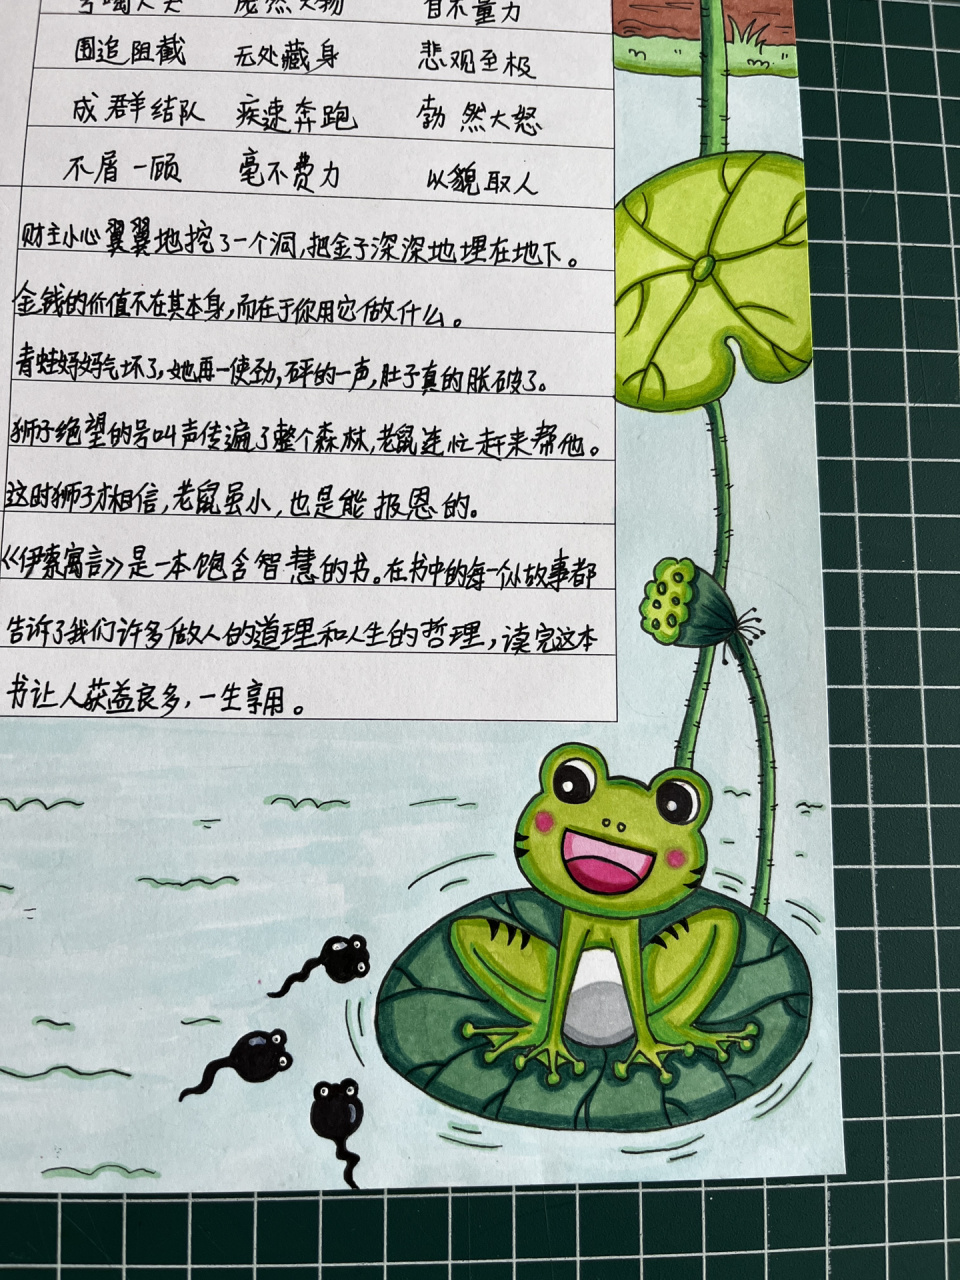 庞然大物 自不量力
围追阻截 无处藏身 悲观至极
成群结队 疾速奔跑 勃然大怒
不屑一顾 毫不费力 以貌取人
财主小心翼翼地挖了一个洞,把金子深深地埋在地下。
金钱的价值不在其本身,而在于你用它做什么。
青蛙妈妈气坏了,她再一使劲,砰的一声,肚子真的胀破了。
狮子绝望的号叫声传遍了整个森林,老鼠连忙赶来帮他。
这时狮子才相信,老鼠虽小,也是能报恩的。
《伊索寓言》是一本饱含智慧的书。在书中的每一个小故事都
告诉了我们许多做人的道理和人生的哲理,读完这本
书让人获益良多,一生享用。